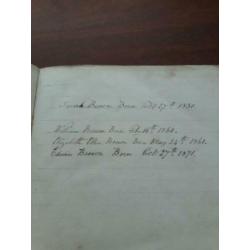 Sarah Brown Born Oct 27th 1831.
William Brown Born Feb 14th 1860.
Elizabeth Ellen Brown Born May 24th 1861.
Edwin Brown Born Oct 27th 1871.